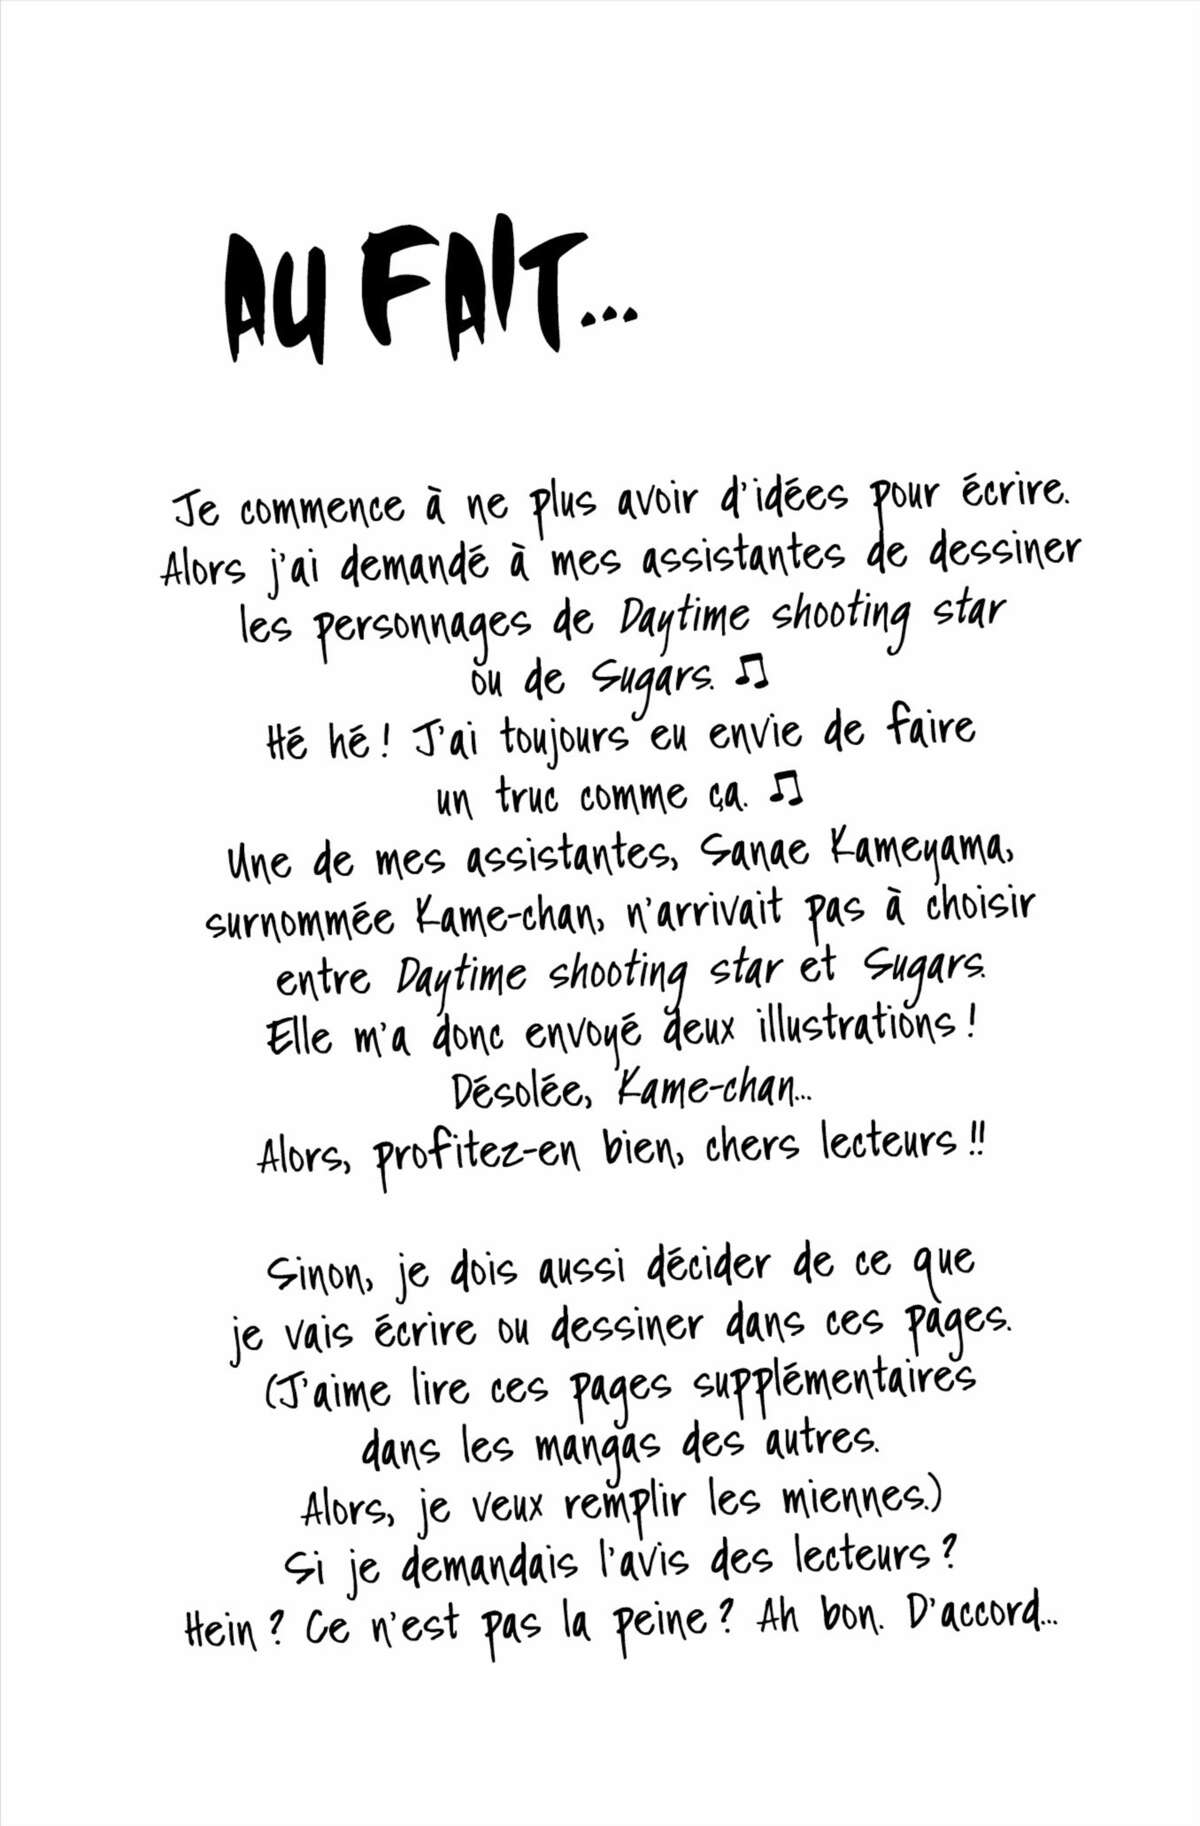 AU FAIT...
Je commence à ne plus avoir d'idées pour écrire.
Alors j'ai demandé à mes assistantes de dessiner
les personnages de Daytime shooting star
ou de Sugars. ♫
Hé hé ! J'ai toujours eu envie de faire
un truc comme ça. ♫
Une de mes assistantes, Sanae Kameyama,
surnommée Kame-chan, n'arrivait pas à choisir
entre Daytime shooting star et Sugars.
Elle m'a donc envoyé deux illustrations !
Désolée, Kame-chan...
Alors, profitez-en bien, chers lecteurs !!
Sinon, je dois aussi décider de ce que
je vais écrire ou dessiner dans ces pages.
(J'aime lire ces pages supplémentaires
dans les mangas des autres.
Alors, je veux remplir les miennes.)
Si je demandais l'avis des lecteurs ?
Hein ? Ce n'est pas la peine ? Ah bon. D'accord...